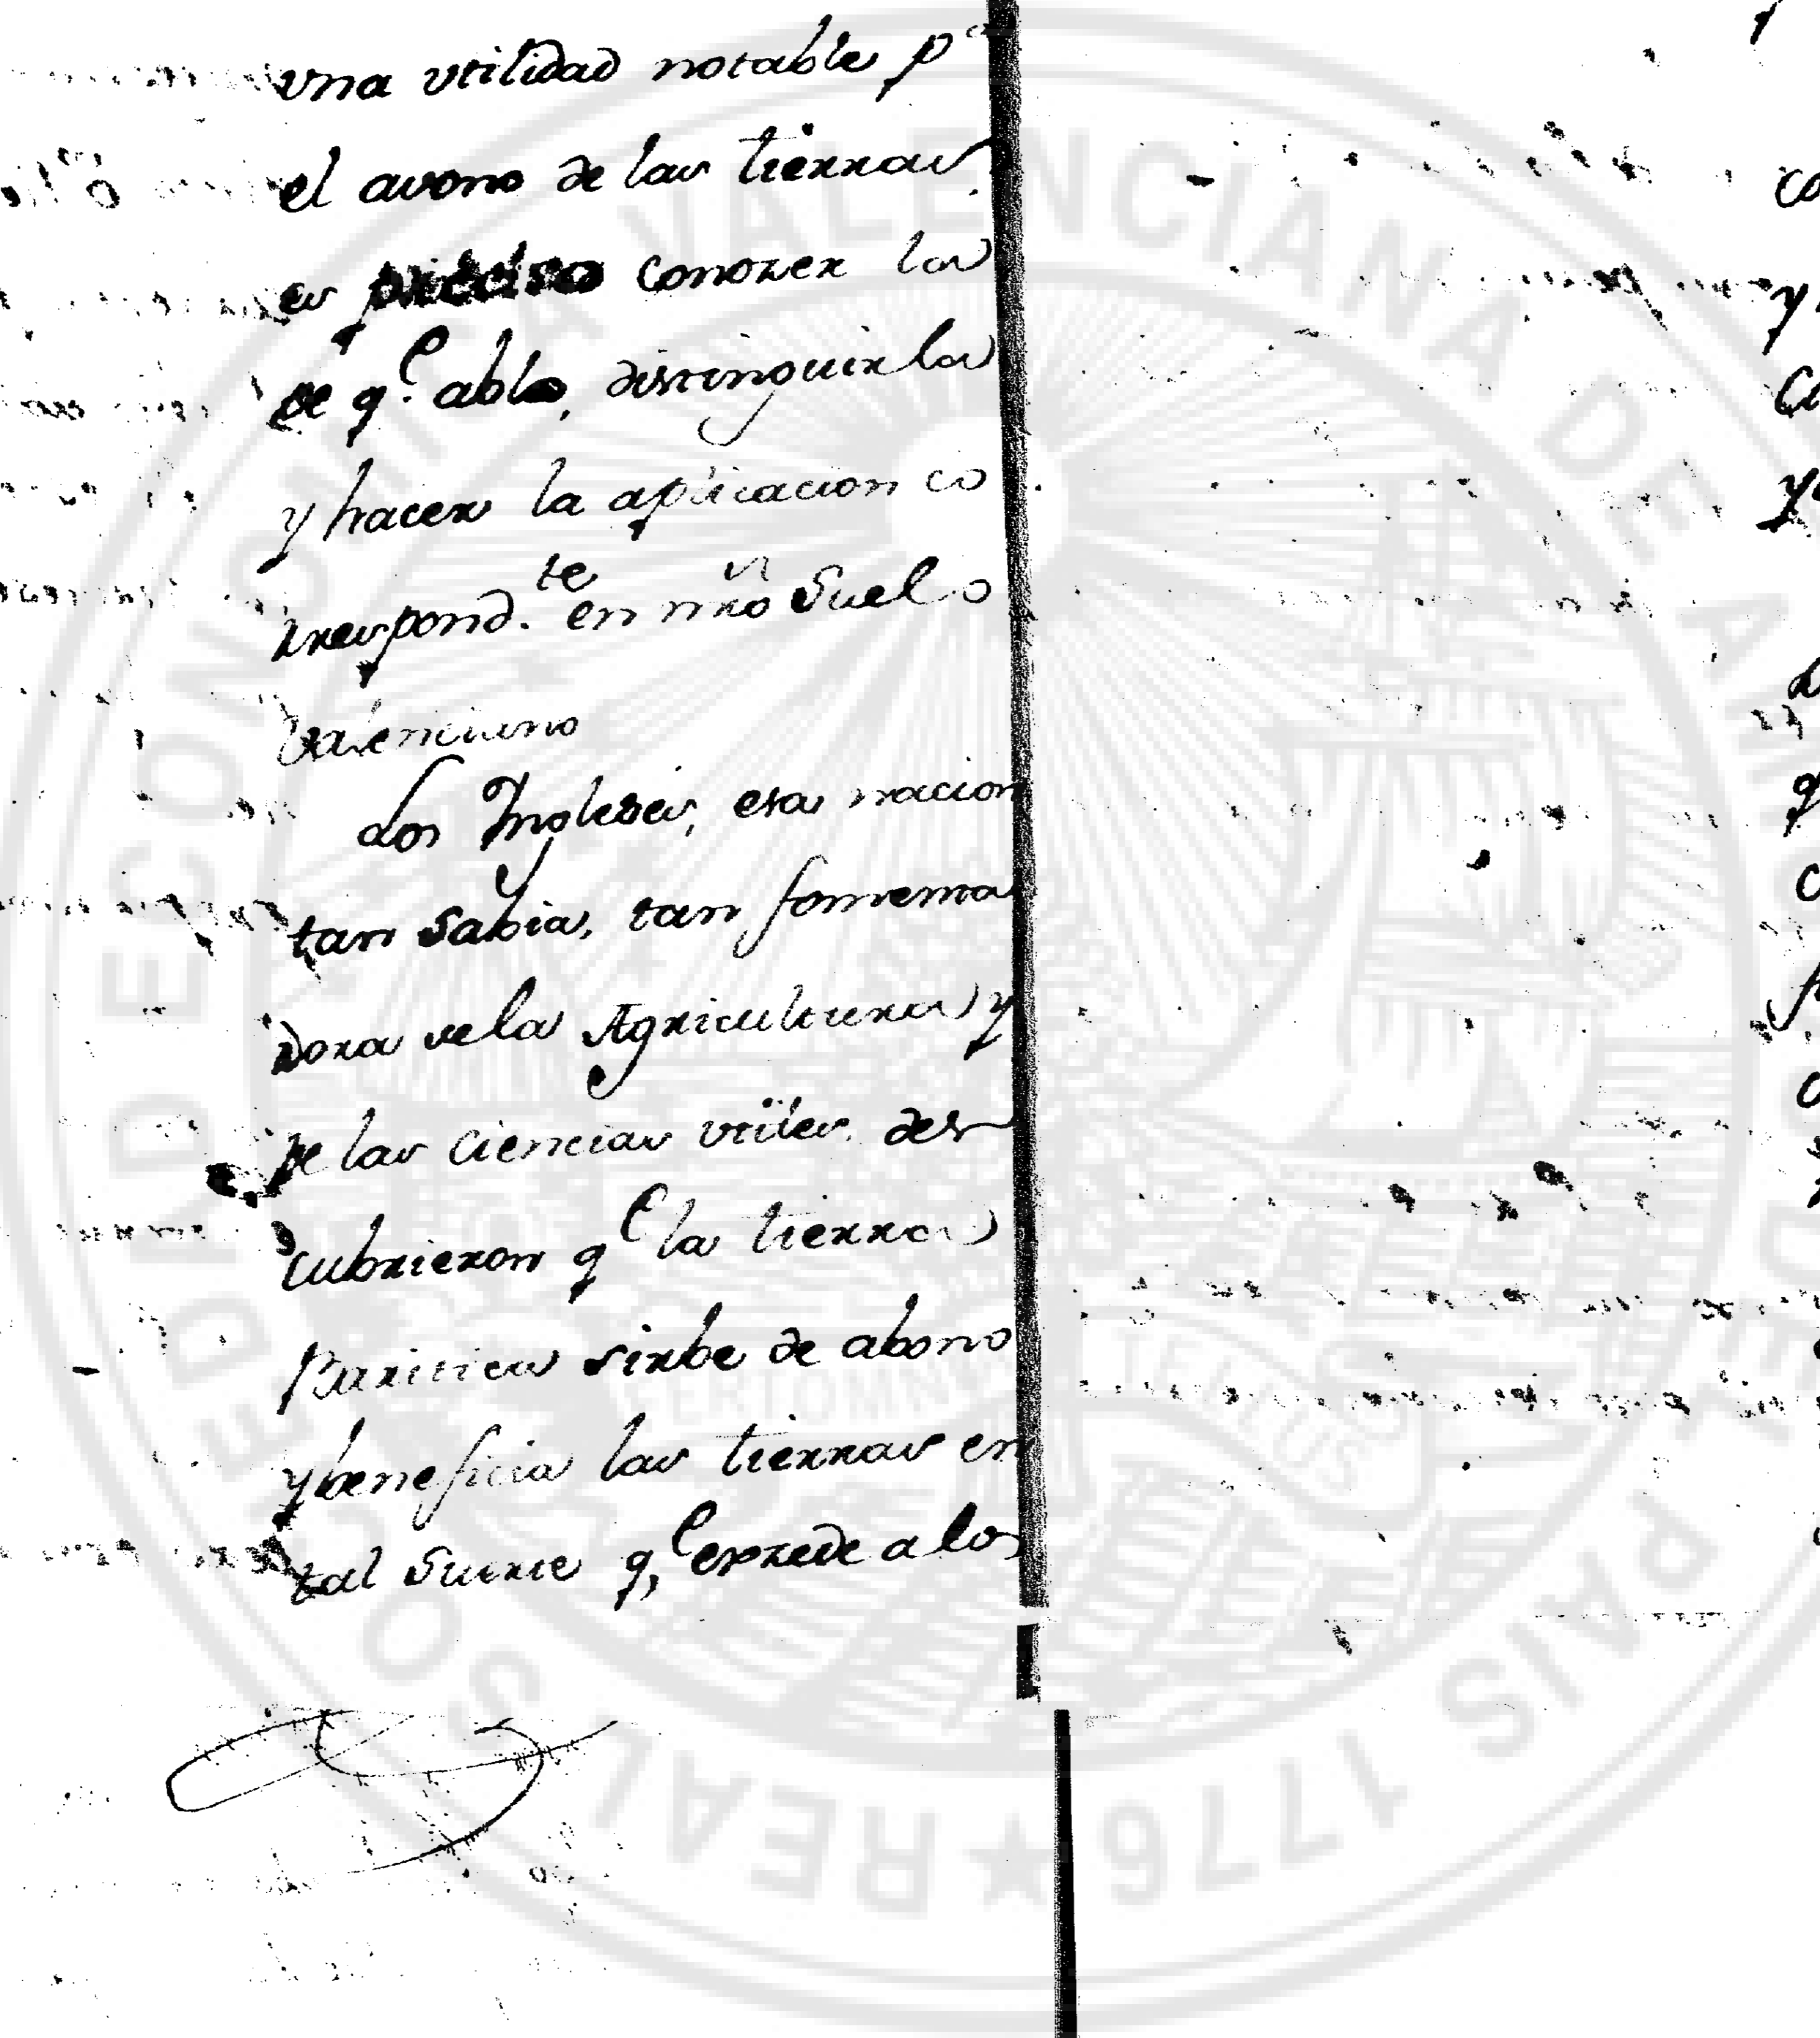 una utilidad notable pª
el avono de las tierras
es preciso conozer las
de q.e ablo, distinguirlas
y hacer la aplicacion co
rrespond.te en nrõ Suelo
Valenciano
Los Ingleses, esa nacion
tan Sabia, tan fomenta
dora de la Agricultura y
de las ciencias utiles, des
cubrieron q.e la tierra
Baritica sirbe de abono
y beneficia las tierras en
tal Suerte q.e exzede a los
REAL SOCIEDAD ECONOMICA VALENCIANA DE AMIGOS DEL PAIS 1776